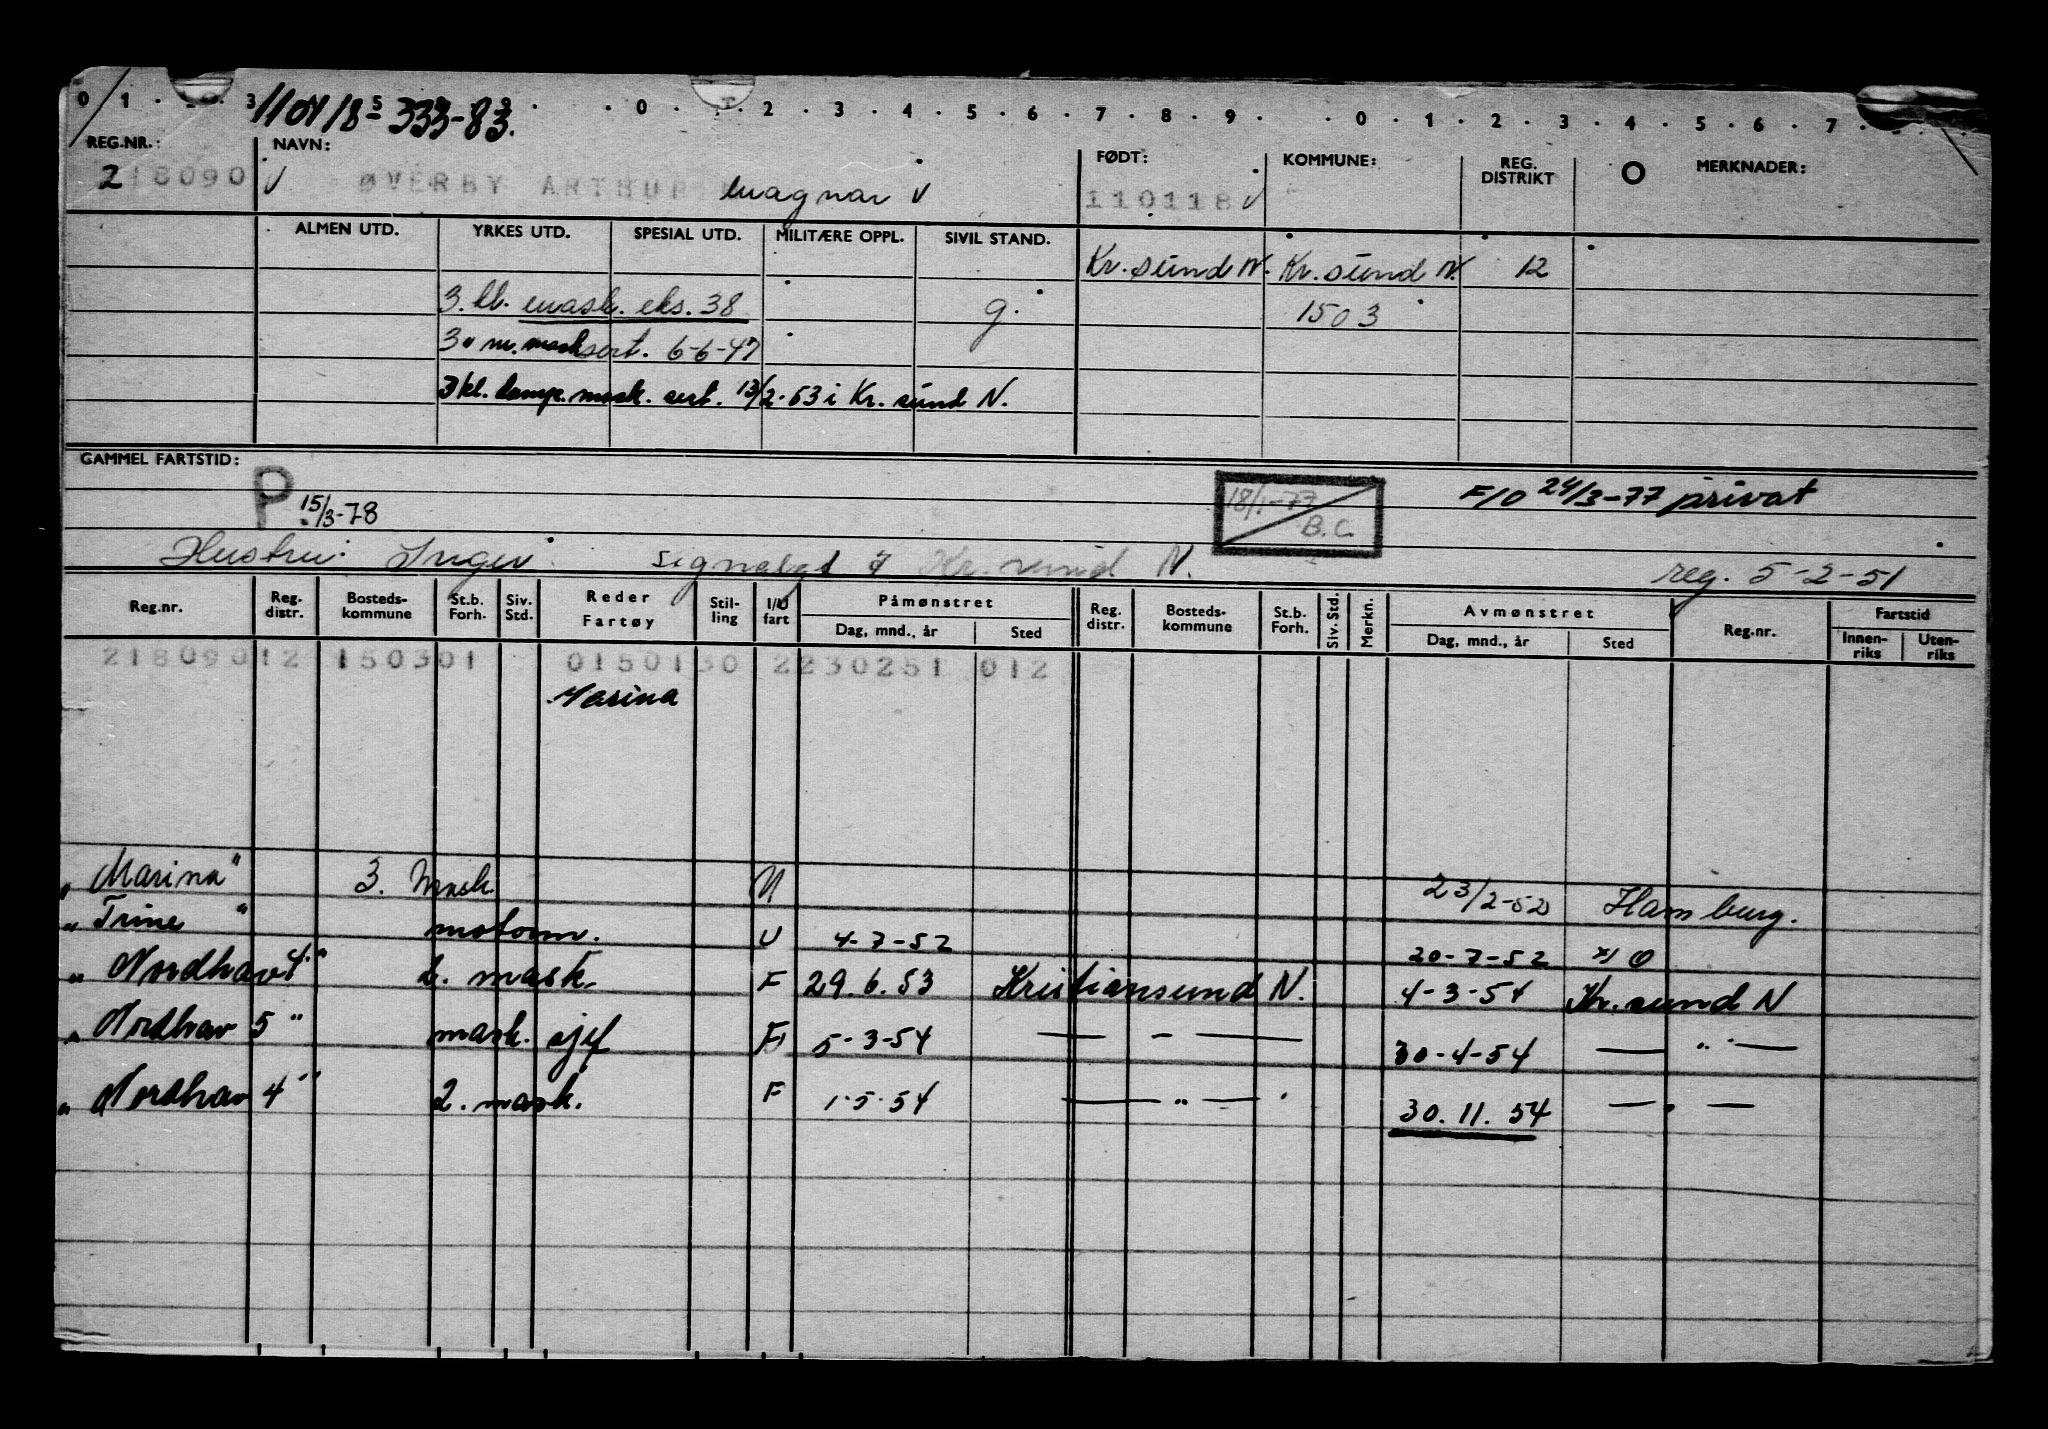 0 1 3 5 0 2 3 4 5 6 7 8 9 0 1 2 3 4 5 6 7
110118 - 333-83.
REG.NR.: NAVN: FØDT: KOMMUNE: REG. DISTRIKT O MERKNADER:
218090 ØVERBY ARTHUR Magnar 110118
ALMEN UTD. YRKES UTD. SPESIAL UTD. MILITÆRE OPPL. SIVIL STAND.
Kr. sund N. Kr. sund N. 12
3. kl. mask. eks. 38 g. 1503
3. m. mask sert. 6-6-47
3 kl. damp. mask. sert. 13/2-53 i Kr. sund N.
GAMMEL FARTSTID:
P 15/3-78 18/1-77 B.C. F/O 24/3-77 privat
Hustru: Inger Kr. sund N. reg. 5-2-51
Reg.nr. Reg. distr. Bosteds-kommune St.b. Forh. Siv. Std. Reder Fartøy Stil-ling I/U fart Påmønstret Dag, mnd., år Sted Reg. distr. Bosteds-kommune St.b. Forh. Siv. Std. Merkn. Avmønstret Dag, mnd., år Sted Reg.nr. Fartstid Innen-riks Uten-riks
218090 12 150301 0150130 2230251 012
Marina
"Marina" 3. Mask. U 23/2-52 Hamburg.
"Trine" motorm. U 4-7-52 20-7-52
"Nordhav 4" 2. mask. F 29.6.53 Kristiansund N. 4-3-54 Kr. sund N
"Nordhav 5" mask. sjef F 5-3-54 — " — 30-4-54 — " —
"Nordhav 4" 2. mask. F 1.5.54 — " — 30.11.54 — " —